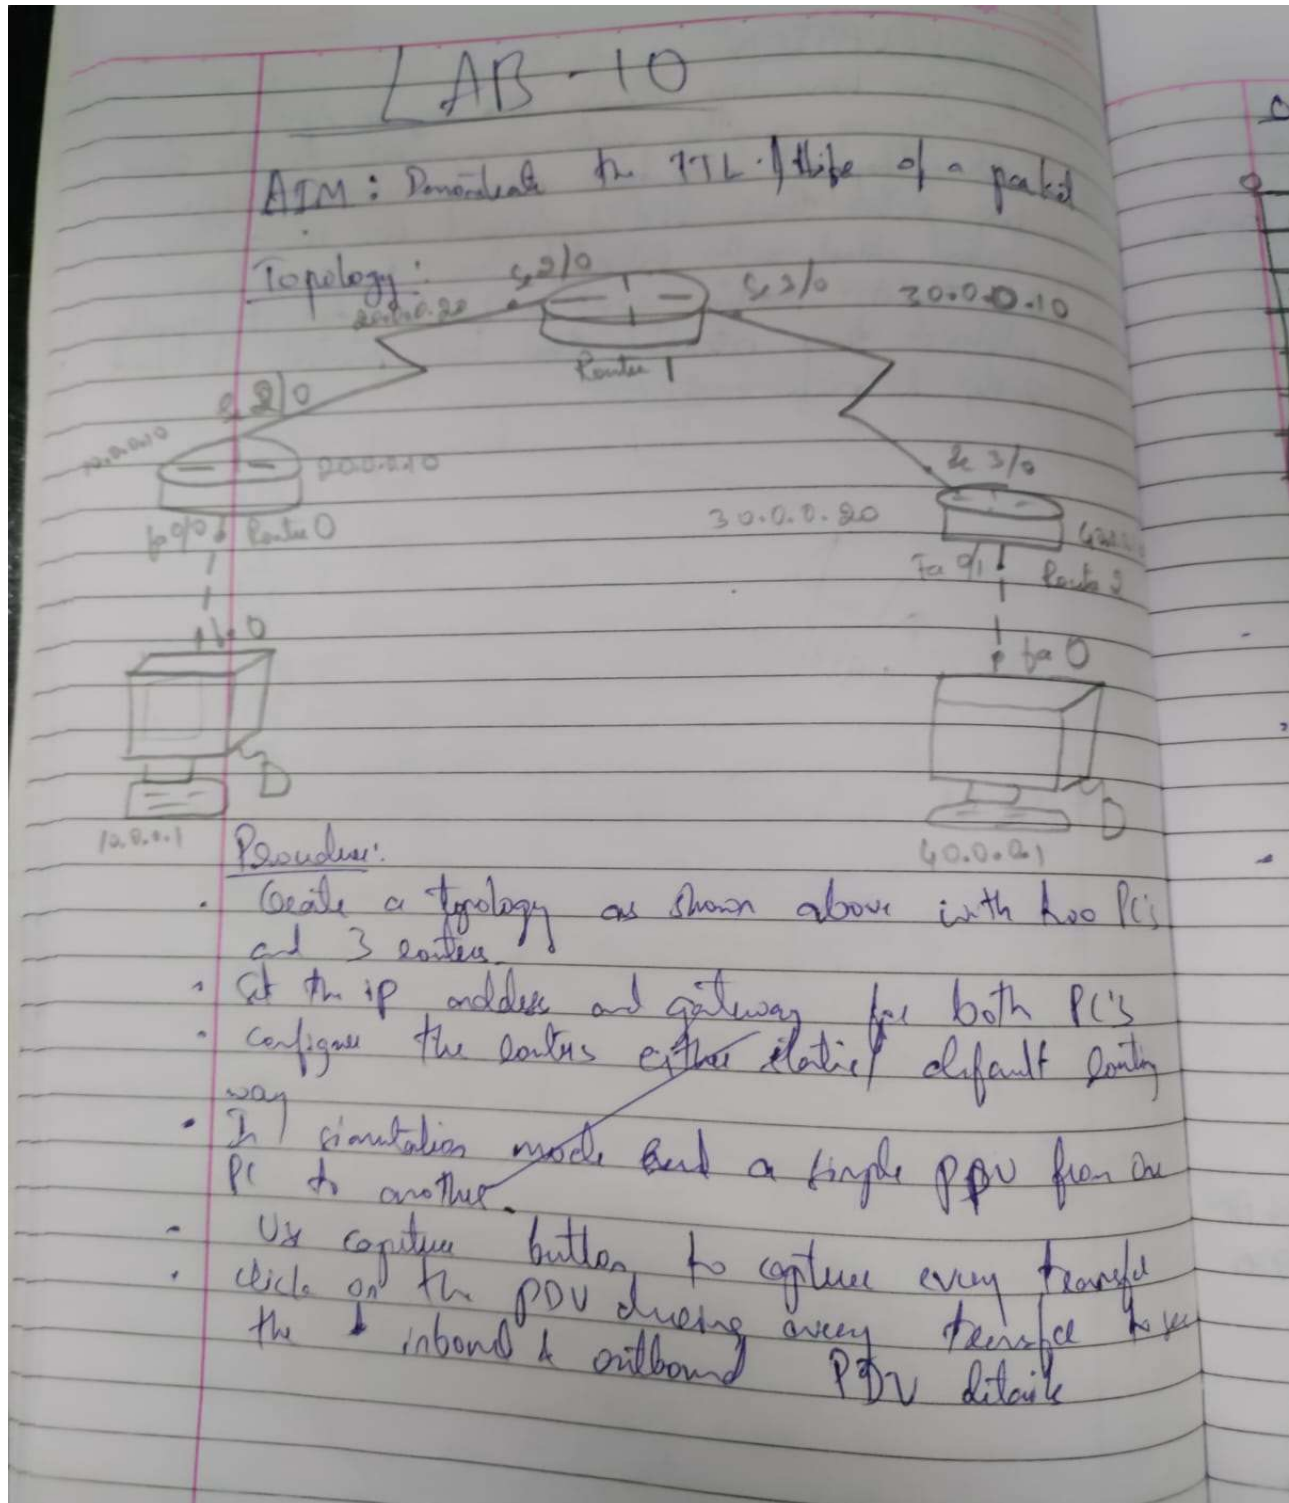 LAB-10
AIM: Demonstrate the TTL / life of a packet
Topology:
Se 2/0
Se 3/0
30.0.0.10
20.0.0.20
Router 1
Se 2/0
10.0.0.10
20.0.0.10
Se 3/0
30.0.0.20
fa 0/0 Router 0
Fa 0/1 Router 2
fa 0
10.0.0.1
40.0.0.1
Procedure:
Create a topology as shown above with two PC's
and 3 routers
Set the ip address and gateway for both PC's
configure the routers either static/ default routing
way
In simulation mode send a simple PDU from one
PC to another.
Use capture button to capture every transfer
click on the PDU during every transfer to see
the inbound & outbound PDU details